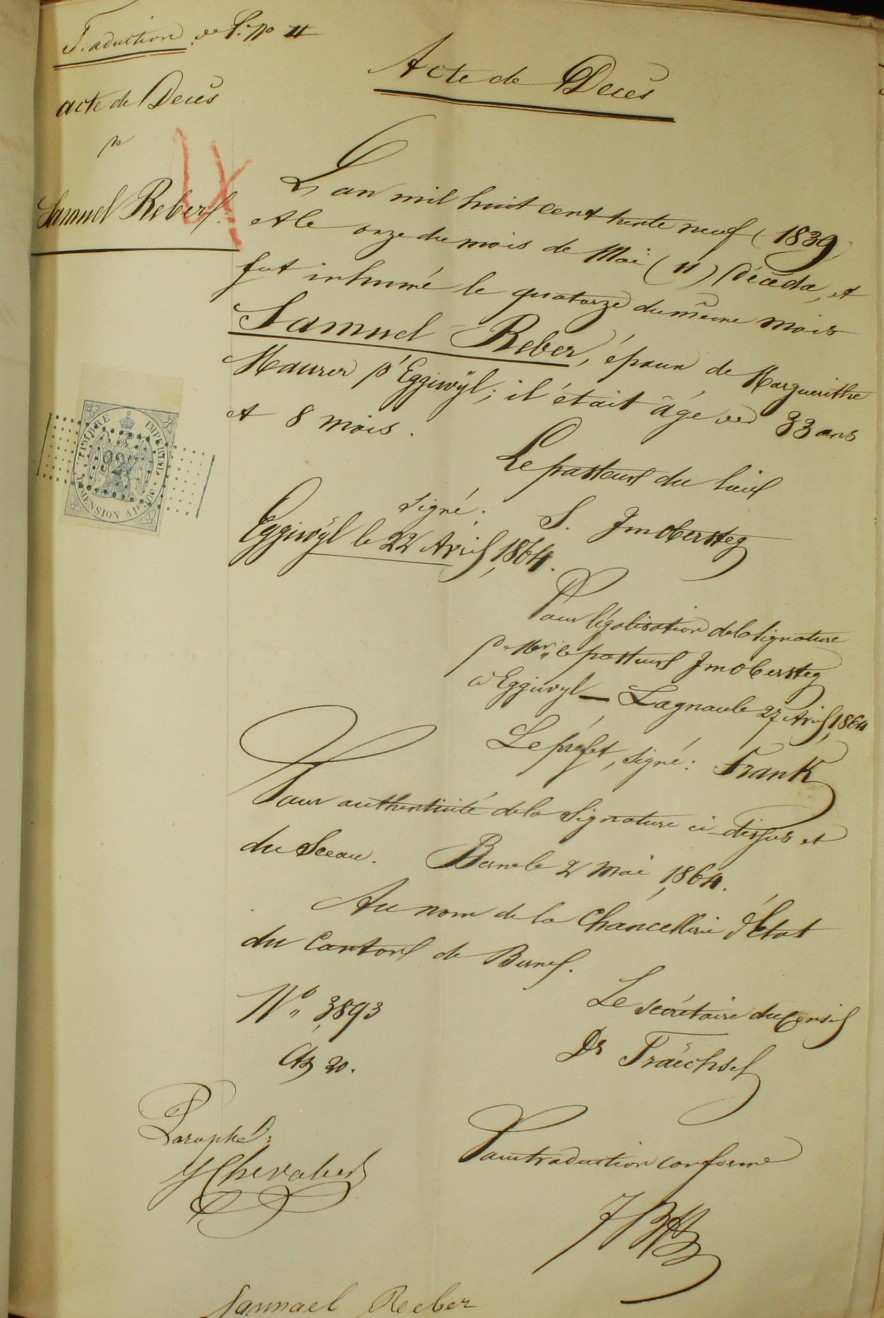 Traduction de P. No 11
acte de Decès
pr
Samuel Reber
Acte de Decès
L'an mil huit cent trente neuf (1839
et le onze du mois de Mai (11) décéda, et
fut inhumé le quatorze du même mois
Samuel Reber, époux de Marguerithe
Maurer d'Eggiwÿl; il était âgé de 33 ans
et 8 mois.
Le pasteur du lieu
signé: S. Jmobersteg
Eggiwÿl le 22 Avril 1864.
TIMBRE IMPERIAL
DIMENSION
Pour légalisation de la signature
de Mr. le pasteur Jmobersteg
à Eggiwyl — le 27 Avril 1864
Le préfet, signé: Frank
Pour authenticité de la signature ci-dessus et
du Sceau. Berne le 2 Mai 1864.
Au nom de la Chancellerie d'Etat
du Canton de Berne.
No 3893
20.
Le secrétaire du
Dr Träechsel
Paraphé:
Pour traduction conforme
Samuael Reeber